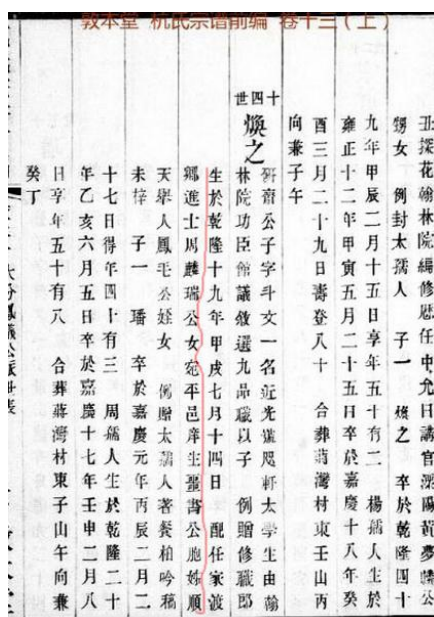 敦本堂 杭氏宗谱前编 卷十三（上）
丑探花翰林院編修歷任中允日講官溧陽黃夢麟公
甥女 例封太孺人 子一 煥之 卒於乾隆四十
九年甲辰二月十五日享年五十有二 楊孺人生於
雍正十二年甲寅五月二十五日卒於嘉慶十八年癸
酉三月二十九日壽登八十 合葬蔣灣村東壬山丙
向兼子午
十四世
煥之
研齋公子字斗文一名近光道咫軒太學生由翰
林院功臣館議敘選九品職以子 例贈修職郎
生於乾隆十九年甲戌七月十四日 配任家渡
鄉進士周麟瑞公女宛平邑庠生聖書公胞姊順
天舉人鳳毛公姪女 例贈太孺人著餐柏吟稿
未梓 子一 璠 卒於嘉慶元年丙辰二月二
十七日得年四十有三 周孺人生於乾隆二十
年乙亥六月五日卒於嘉慶十七年壬申二月八
日享年五十有八 合葬蔣灣村東子山午向兼
癸丁